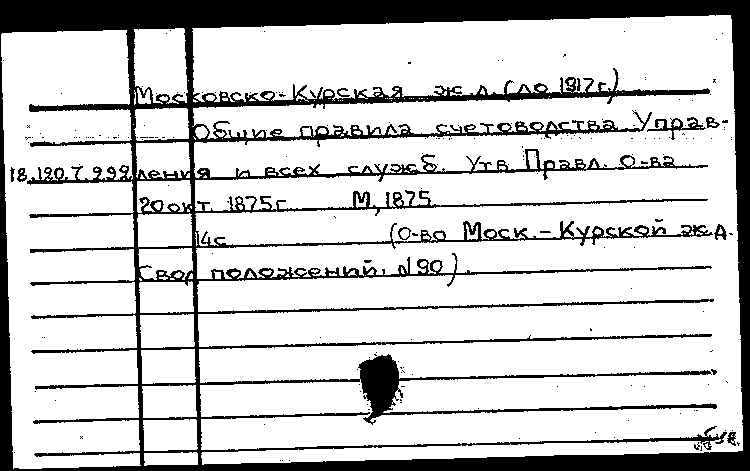 Московско-Курская ж.д. (до 1917г.)
Общие правила счетоводства Управ-
18.120.7.999 ления и всех служб. Утв. Правл. О-ва
20 окт. 1875г. М, 1875.
14с (О-во Моск.-Курской ж.д.
Свод положений, №90).